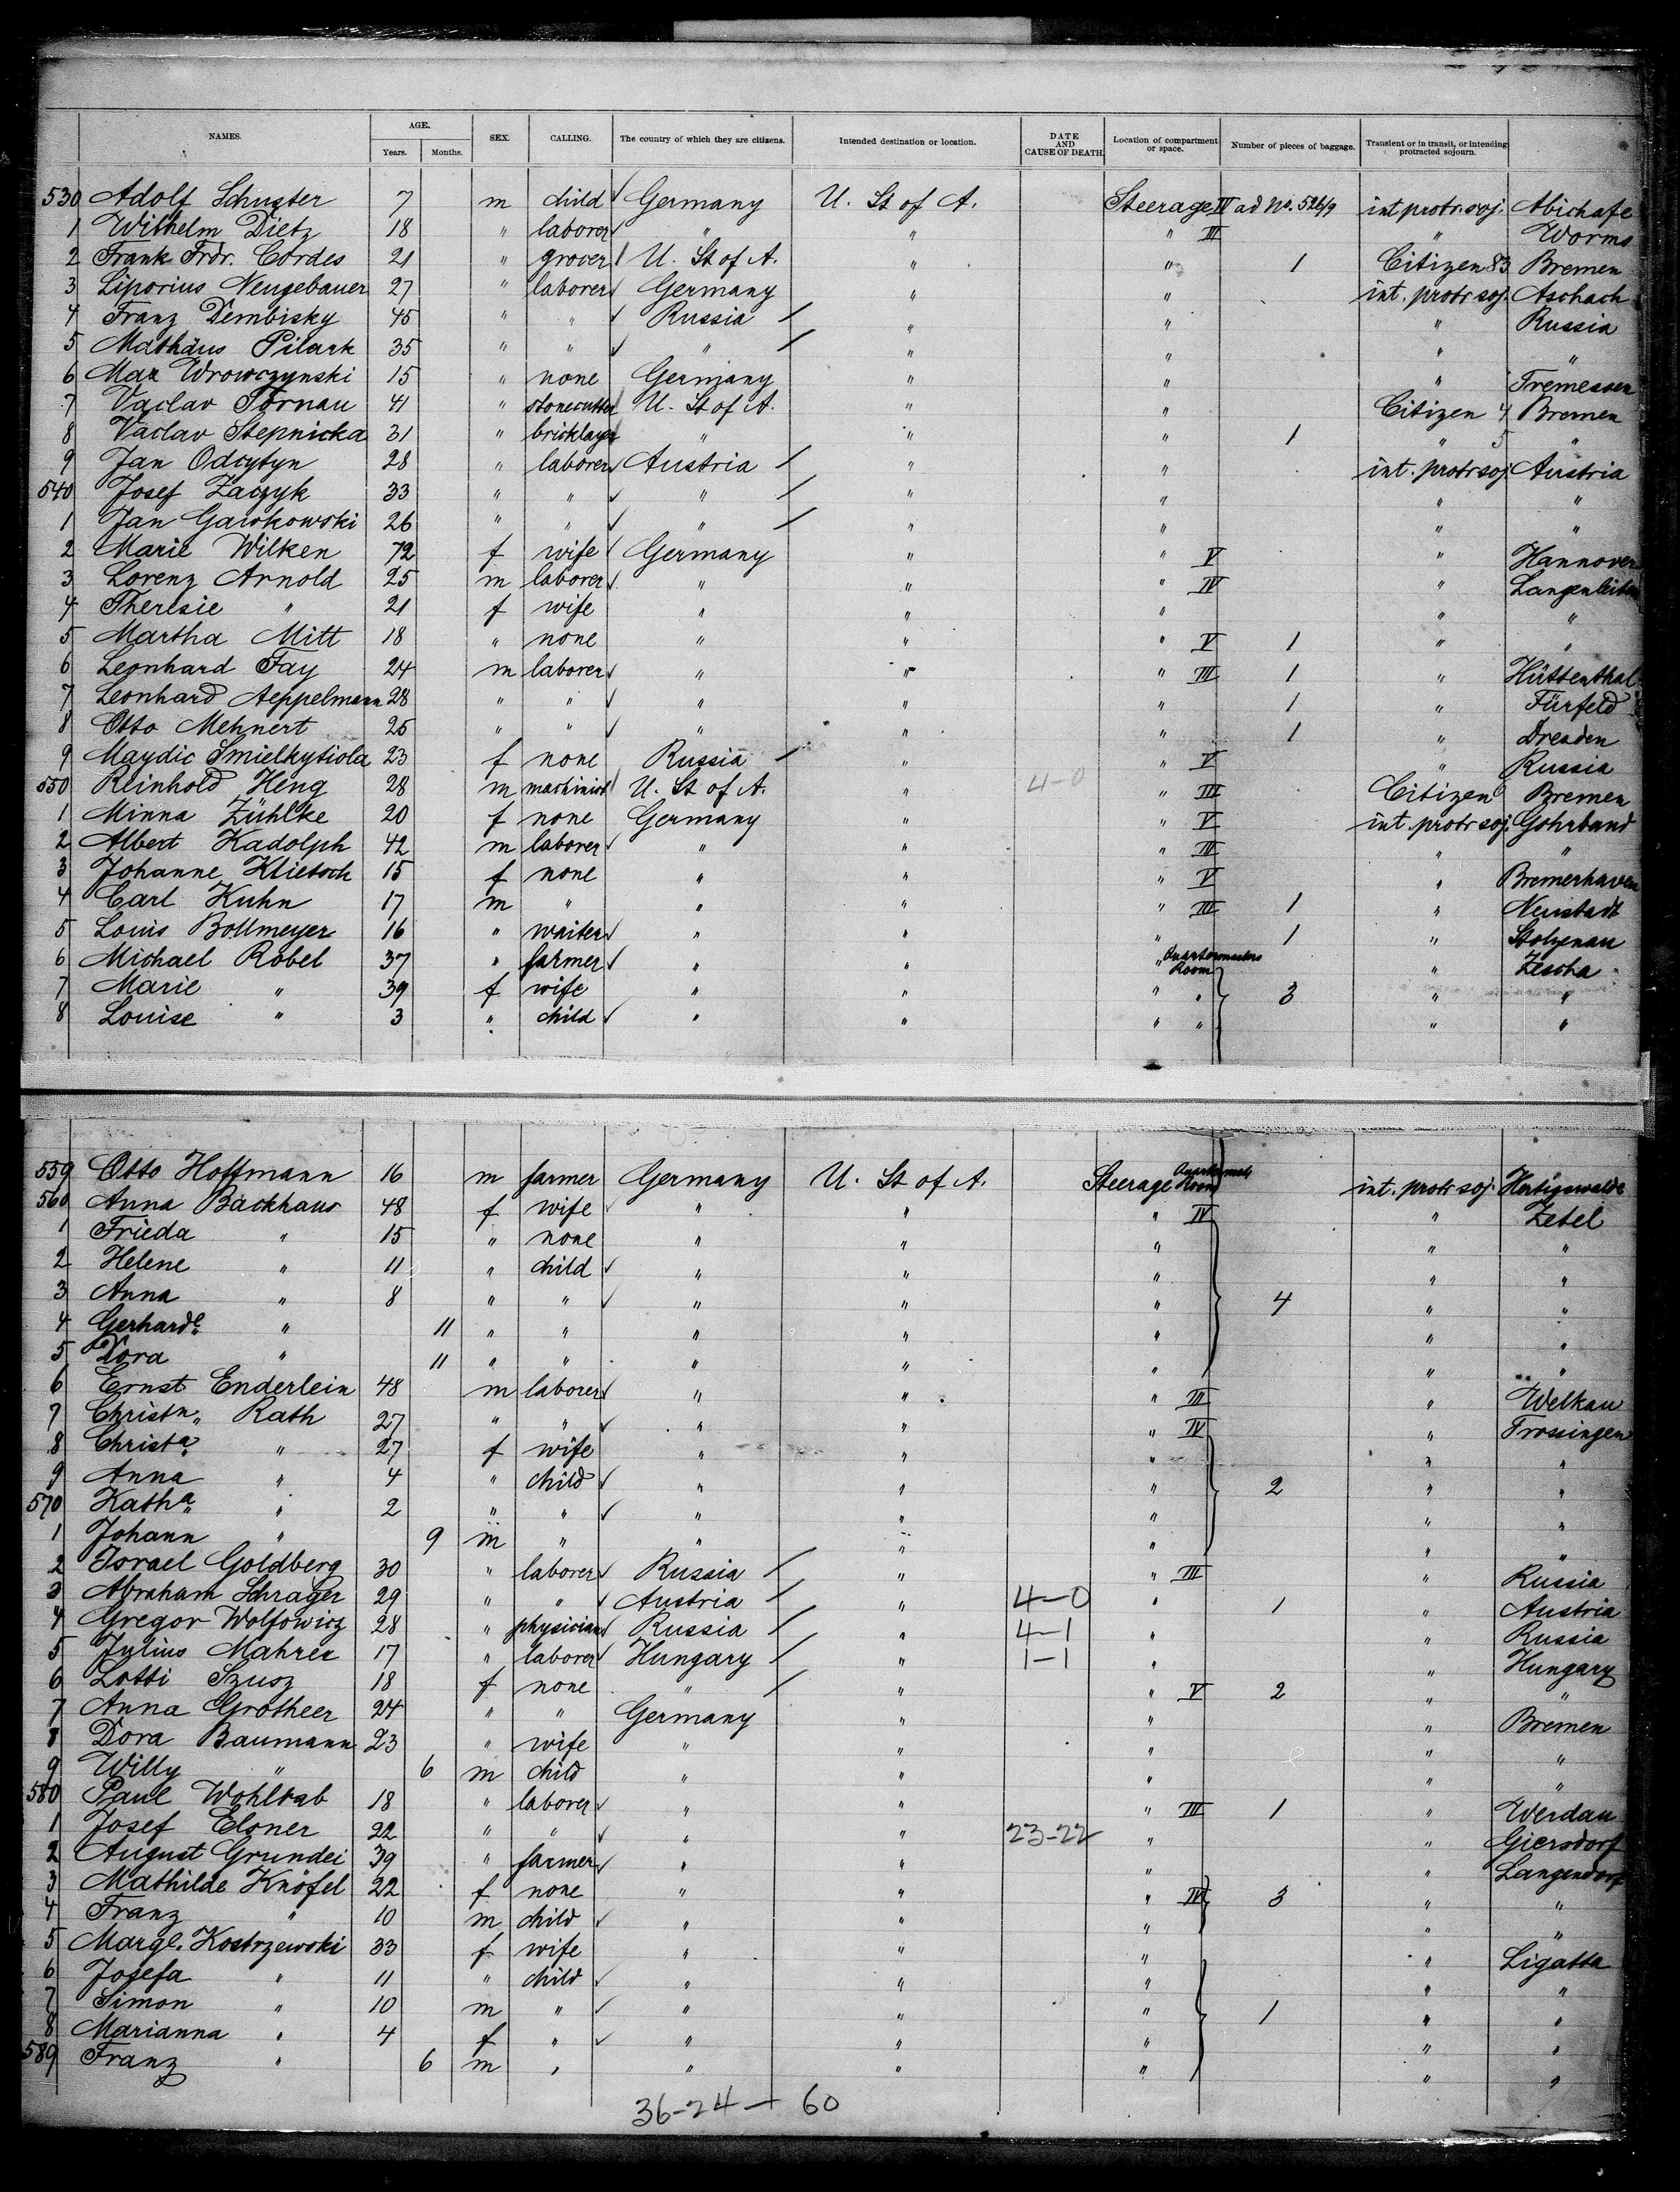 NAMES. AGE. SEX. CALLING. The country of which they are citizens. Intended destination or location. DATE AND CAUSE OF DEATH. Location of compartment or space. Number of pieces of baggage. Transient or in transit, or intending protracted sojourn.
Years. Months.
530 Adolf Schuster 7 m child Germany U. St of A. Steerage III ad No. 526/9 int protr. soj.
1 Wilhelm Dietz 18 " laborer " " " III " Worms
2 Frank Frdr. Cordes 21 " grocer U. St of A. " " 1 Citizen 83 Bremen
3 Liporius Neugebauer 27 " laborer Germany " " int. protr soj. Aschach
4 Franz Dembisky 45 " " Russia " " " Russia
5 Mathäus Pilark 35 " " " " " " "
6 Max Wrowczynski 15 " none Germany " " " Tremessen
7 Vaclav Tornau 41 " stonecutter U. St of A. " " Citizen 4 Bremen
8 Vaclav Stepnicka 31 " bricklayer " " " 1 " 5 "
9 Jan Odcytyn 28 " laborer Austria " " int. protr soj. Austria
540 Josef Zaczyk 33 " " " " " " "
1 Jan Gawkowski 26 " " " " " " "
2 Marie Wilken 72 f wife Germany " " V " Hannover
3 Lorenz Arnold 25 m laborer " " " IV " Langenleiten
4 Theresie " 21 f wife " " " " "
5 Martha Mitt 18 " none " " " V 1 " "
6 Leonhard Fay 24 m laborer " " " III 1 " Hüttenthal
7 Leonhard Aeppelmann 28 " " " " " 1 " Fürfeld
8 Otto Mehnert 25 " " " " " 1 " Dresden
9 Maydic Smielkytiola 23 f none Russia " " V " Russia
550 Reinhold Heng 28 m machinist U. St of A. " 4-0 " III Citizen Bremen
1 Minna Zühlke 20 f none Germany " " V int. protr soj. Gohrband
2 Albert Kadolph 42 m laborer " " " III " "
3 Johanne Klietsch 15 f none " " " V " Bremerhaven
4 Carl Kuhn 17 m " " " " III 1 " Neustadt
5 Louis Bollmeyer 16 " waiter " " " 1 " Stolzenau
6 Michael Robel 37 " farmer " " " Quartermasters Room " Zescha
7 Marie " 39 f wife " " " " 3 " "
8 Louise " 3 " child " " " " " "
559 Otto Hoffmann 16 m farmer Germany U. St of A. Steerage Room int. protr soj. Hertigswalde
560 Anna Backhaus 48 f wife " " " IV " Zetel
1 Frieda " 15 " none " " " " "
2 Helene " 11 " child " " " " "
3 Anna " 8 " " " " " 4 " "
4 Gerharde " 11 " " " " " " "
5 Dora " 11 " " " " " " "
6 Ernst Enderlein 48 m laborer " " " III " Welkau
7 Christn Rath 27 " " " " " IV " Trossingen
8 Christa " 27 f wife " " " " "
9 Anna " 4 " child " " " 2 " "
570 Katha " 2 " " " " " " "
1 Johann " 9 m " " " " " "
2 Israel Goldberg 30 " laborer Russia " " III " Russia
3 Abraham Schrager 29 " " Austria " 4-0 " 1 " Austria
4 Gregor Wolfowicz 28 " physician Russia " 4-1 " " Russia
5 Julius Mahrer 17 " laborer Hungary " 1-1 " " Hungary
6 Lotti Szusz 18 f none " " " V 2 " "
7 Anna Grotheer 24 " " Germany " " " Bremen
8 Dora Baumann 23 " wife " " " " "
9 Willy " 6 m child " " " " "
580 Paul Wohlrab 18 " laborer " " " III 1 " Werdau
1 Josef Elsner 22 " " " " 23-22 " " Giersdorf
2 August Grundei 39 " farmer " " " " Langendorf
3 Mathilde Knöfel 22 f none " " " IV 3 " "
4 Franz " 10 m child " " " " "
5 Marge. Kostrzewski 33 f wife " " " " Ligatta
6 Josefa " 11 " child " " " " "
7 Simon " 10 m " " " " 1 " "
8 Marianna " 4 f " " " " " "
589 Franz " 6 m " " " " " "
36-24- 60